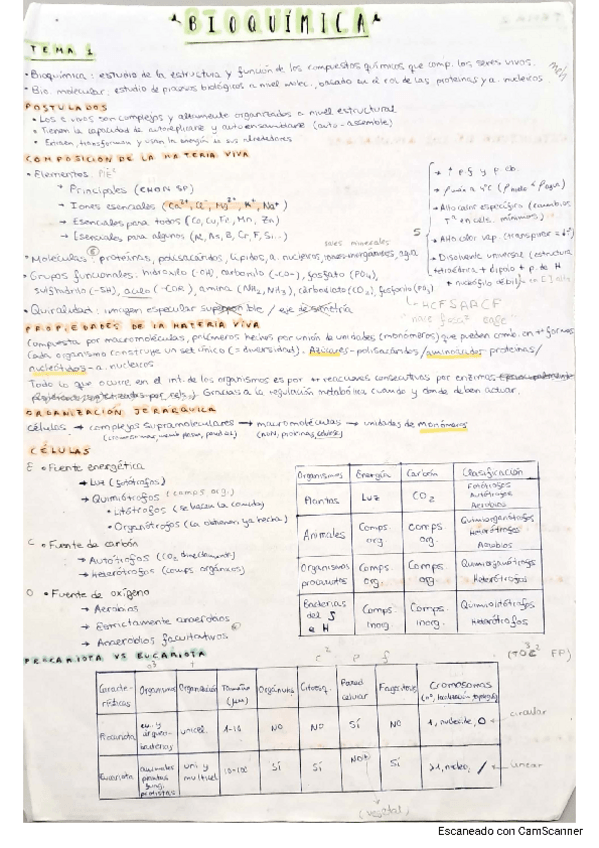 BIOQUÍMICA
TEMA 1
• Bioquímica: estudio de la estructura y función de los compuestos químicos que comp. los seres vivos.
• Bio. molecular: estudio de procesos biológicos a nivel molec., basado en el rol de las proteínas y a. nucleicos
POSTULADOS
• Los s. vivos son complejos y altamente organizados a nivel estructural
• Tienen la capacidad de autoreplicarse y autoensamblarse (auto-assemble)
• Extraen, transforman y usan la energía de sus alrededores
COMPOSICIÓN DE LA MATERIA VIVA
• Elementos
→ Principales (CHON SP)
→ Iones esenciales (Ca²⁺, Cl⁻, Mg²⁺, K⁺, Na⁺)
→ Esenciales para todos (Co, Cu, Fe, Mn, Zn)
→ Esenciales para algunos (Al, As, B, Cr, F, Si...)
→ ↑ p.f y p. eb.
→ Alto calor específico (cambios Tª en cels. mínimos)
→ Alto calor vap. (transpirar = ↓Tª)
→ Disolvente universal (estructura tetraédrica + dipolo + p. de H
sales minerales
• Moléculas: proteínas, polisacáridos, lípidos, a. nucleicos, iones inorgánicos, agua
• Grupos funcionales: hidroxilo (-OH), carbonilo (-CO-), fosfato (PO₄),
sulfhidrilo (-SH), acilo (-COR), amina (NH₂, NH₃), carboxilato (CO₂), fosforilo (PO₃)
HCFSAACF
• Quiralidad: imagen especular superponible / eje de simetría
PROPIEDADES DE LA MATERIA VIVA
Compuesta por macromoléculas, polímeros hechos por unión de unidades (monómeros) que pueden comb. en ++ formas
Cada organismo construye un set único (= diversidad). Azúcares - polisacáridos / aminoácidos - proteínas /
nucleótidos - a. nucleicos
Todo lo que ocurre en el int. de los organismos es por ++ reacciones consecutivas por enzimas
Gracias a la regulación metabólica cuando y donde deben actuar.
ORGANIZACIÓN JERÁRQUICA
células → complejos supramoleculares → macromoléculas → unidades de monómeros
CÉLULAS
E • Fuente energética
→ Luz (fotótrofos)
→ Quimiótrofos (comps org.)
• Litótrofos (se hacen la comida)
• Organótrofos (la obtienen ya hecha)
C • Fuente de carbón
→ Autótrofos (CO₂ directamente)
→ Heterótrofos (comps orgánicos)
O • Fuente de oxígeno
→ Aerobios
→ Estrictamente anaerobios
→ Anaerobios facultativos
Organismos Energía Carbón Clasificación
Plantas Luz CO₂ Fotótrofos Autótrofos Aerobios
Animales Comps. org. Comps. org. Quimiorganótrofos Heterótrofos Aerobios
Organismos procariotas Comps org. Comps. org. Quimiorganótrofos Heterótrofos
Bacterias del S e H Comps inorg Comps. inorg. Quimiolitótrofos Heterótrofos
PROCARIOTA VS EUCARIOTA
Características Organismo Organización Tamaño (μm) Orgánulos Citoesq. Pared celular Fagocitosis Cromosomas (nº, localización, topología)
Procariota unicel. 1-10 NO NO SÍ NO 1, nucleoide, O ← circular
Eucariota animales plantas fungi protistas uni y multicel. 10-100 SÍ SÍ NO* SÍ >1, núcleo, / ← linear
(vegetal)
Escaneado con CamScanner